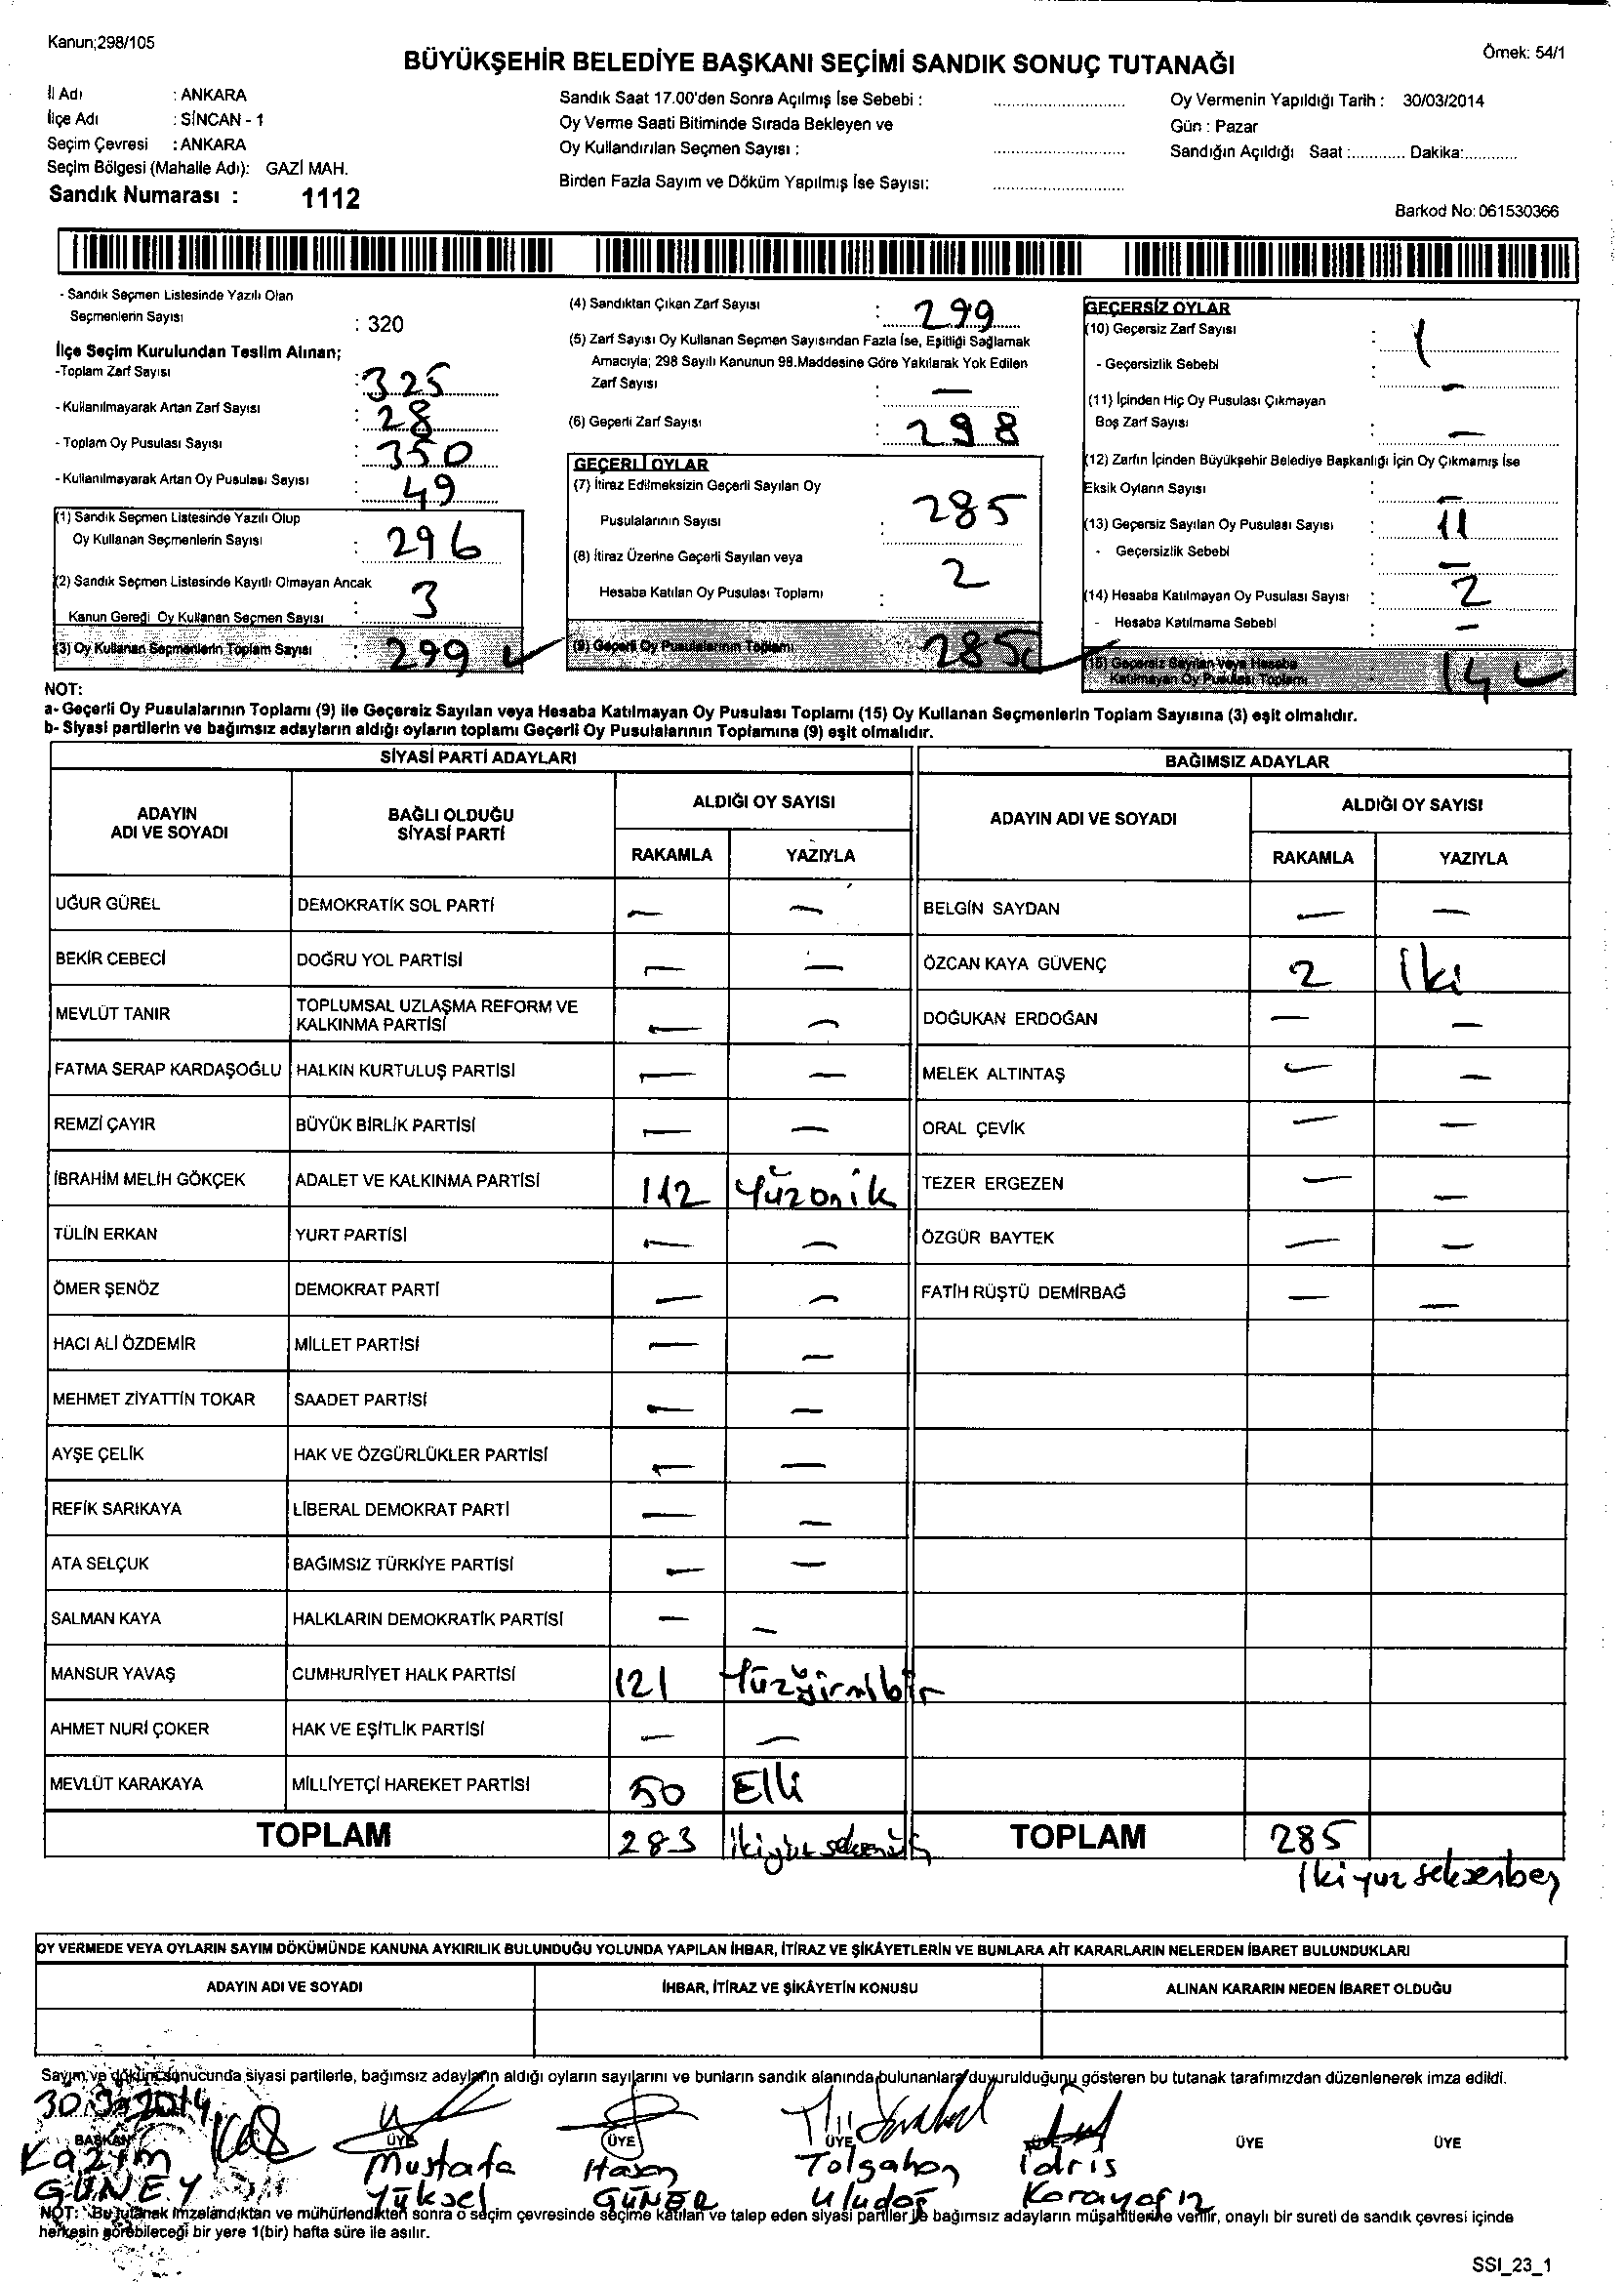 Kanun;298/105
Örnek: 54/1
BÜYÜKŞEHİR BELEDİYE BAŞKANI SEÇİMİ SANDIK SONUÇ TUTANAĞI
İl Adı : ANKARA
İlçe Adı : SİNCAN - 1
Seçim Çevresi : ANKARA
Seçim Bölgesi (Mahalle Adı): GAZİ MAH.
Sandık Numarası : 1112
Sandık Saat 17.00'den Sonra Açılmış İse Sebebi :
Oy Verme Saati Bitiminde Sırada Bekleyen ve
Oy Kullandırılan Seçmen Sayısı :
Birden Fazla Sayım ve Döküm Yapılmış İse Sayısı:
Oy Vermenin Yapıldığı Tarih : 30/03/2014
Gün : Pazar
Sandığın Açıldığı Saat :............ Dakika:............
Barkod No: 061530366
- Sandık Seçmen Listesinde Yazılı Olan
Seçmenlerin Sayısı : 320
İlçe Seçim Kurulundan Teslim Alınan;
-Toplam Zarf Sayısı : 325
- Kullanılmayarak Artan Zarf Sayısı : 28
- Toplam Oy Pusulası Sayısı : 350
- Kullanılmayarak Artan Oy Pusulası Sayısı : 49
(1) Sandık Seçmen Listesinde Yazılı Olup
Oy Kullanan Seçmenlerin Sayısı : 296
(2) Sandık Seçmen Listesinde Kayıtlı Olmayan Ancak
Kanun Gereği Oy Kullanan Seçmen Sayısı : 3
(3) Oy Kullanan Seçmenlerin Toplam Sayısı : 299
(4) Sandıktan Çıkan Zarf Sayısı : 299
(5) Zarf Sayısı Oy Kullanan Seçmen Sayısından Fazla İse, Eşitliği Sağlamak
Amacıyla; 298 Sayılı Kanunun 98.Maddesine Göre Yakılarak Yok Edilen
Zarf Sayısı : —
(6) Geçerli Zarf Sayısı : 298
GEÇERLİ OYLAR
(7) İtiraz Edilmeksizin Geçerli Sayılan Oy
Pusulalarının Sayısı : 285
(8) İtiraz Üzerine Geçerli Sayılan veya
Hesaba Katılan Oy Pusulası Toplamı : 2
(9) Geçerli Oy Pusulalarının Toplamı 285
GEÇERSİZ OYLAR
(10) Geçersiz Zarf Sayısı : 1
- Geçersizlik Sebebi : —
(11) İçinden Hiç Oy Pusulası Çıkmayan
Boş Zarf Sayısı : —
(12) Zarfın İçinden Büyükşehir Belediye Başkanlığı İçin Oy Çıkmamış İse
Eksik Oyların Sayısı : —
(13) Geçersiz Sayılan Oy Pusulası Sayısı : 11
- Geçersizlik Sebebi : —
(14) Hesaba Katılmayan Oy Pusulası Sayısı : 2
- Hesaba Katılmama Sebebi : —
(15) Geçersiz Sayılan veya Hesaba
Katılmayan Oy Pusulası Toplamı 14
NOT:
a- Geçerli Oy Pusulalarının Toplamı (9) ile Geçersiz Sayılan veya Hesaba Katılmayan Oy Pusulası Toplamı (15) Oy Kullanan Seçmenlerin Toplam Sayısına (3) eşit olmalıdır.
b- Siyasi partilerin ve bağımsız adayların aldığı oyların toplamı Geçerli Oy Pusulalarının Toplamına (9) eşit olmalıdır.
SİYASİ PARTİ ADAYLARI
BAĞIMSIZ ADAYLAR
ADAYIN ADI VE SOYADI
BAĞLI OLDUĞU SİYASİ PARTİ
ALDIĞI OY SAYISI
RAKAMLA YAZIYLA
ADAYIN ADI VE SOYADI
ALDIĞI OY SAYISI
RAKAMLA YAZIYLA
UĞUR GÜREL DEMOKRATİK SOL PARTİ — — BELGİN SAYDAN — —
BEKİR CEBECİ DOĞRU YOL PARTİSİ — — ÖZCAN KAYA GÜVENÇ 2 İki
MEVLÜT TANIR TOPLUMSAL UZLAŞMA REFORM VE KALKINMA PARTİSİ — — DOĞUKAN ERDOĞAN — —
FATMA SERAP KARDAŞOĞLU HALKIN KURTULUŞ PARTİSİ — — MELEK ALTINTAŞ — —
REMZİ ÇAYIR BÜYÜK BİRLİK PARTİSİ — — ORAL ÇEVİK — —
İBRAHİM MELİH GÖKÇEK ADALET VE KALKINMA PARTİSİ 112 Yüzonik TEZER ERGEZEN — —
TÜLİN ERKAN YURT PARTİSİ — — ÖZGÜR BAYTEK — —
ÖMER ŞENÖZ DEMOKRAT PARTİ — — FATİH RÜŞTÜ DEMİRBAĞ — —
HACI ALİ ÖZDEMİR MİLLET PARTİSİ — —
MEHMET ZİYATTİN TOKAR SAADET PARTİSİ — —
AYŞE ÇELİK HAK VE ÖZGÜRLÜKLER PARTİSİ — —
REFİK SARIKAYA LİBERAL DEMOKRAT PARTİ — —
ATA SELÇUK BAĞIMSIZ TÜRKİYE PARTİSİ — —
SALMAN KAYA HALKLARIN DEMOKRATİK PARTİSİ — —
MANSUR YAVAŞ CUMHURİYET HALK PARTİSİ 121 Yüzyirmibir
AHMET NURİ ÇOKER HAK VE EŞİTLİK PARTİSİ — —
MEVLÜT KARAKAYA MİLLİYETÇİ HAREKET PARTİSİ 50 Elli
TOPLAM 283 İkiyüz seksenüç TOPLAM 285
İkiyuz seksenbeş
OY VERMEDE VEYA OYLARIN SAYIM DÖKÜMÜNDE KANUNA AYKIRILIK BULUNDUĞU YOLUNDA YAPILAN İHBAR, İTİRAZ VE ŞİKÂYETLERİN VE BUNLARA AİT KARARLARIN NELERDEN İBARET BULUNDUKLARI
ADAYIN ADI VE SOYADI İHBAR, İTİRAZ VE ŞİKÂYETİN KONUSU ALINAN KARARIN NEDEN İBARET OLDUĞU
Sayım ve döküm sonucunda siyasi partilerle, bağımsız adayların aldığı oyların sayılarını ve bunların sandık alanında bulunanlara duyurulduğunu gösteren bu tutanak tarafımızdan düzenlenerek imza edildi.
30.3.2014
BAŞKAN ÜYE ÜYE ÜYE ÜYE ÜYE ÜYE
Kazım Mustafa Hasan Tolgahan İdris
GÜNEY Yüksel GÜNER Uludağ Karayağız
NOT: Bu tutanak imzalandıktan ve mühürlendikten sonra o seçim çevresinde seçime katılan ve talep eden siyasi partiler ile bağımsız adayların müşahitlerine verilir, onaylı bir sureti de sandık çevresi içinde
herkesin görebileceği bir yere 1(bir) hafta süre ile asılır.
SSI_23_1